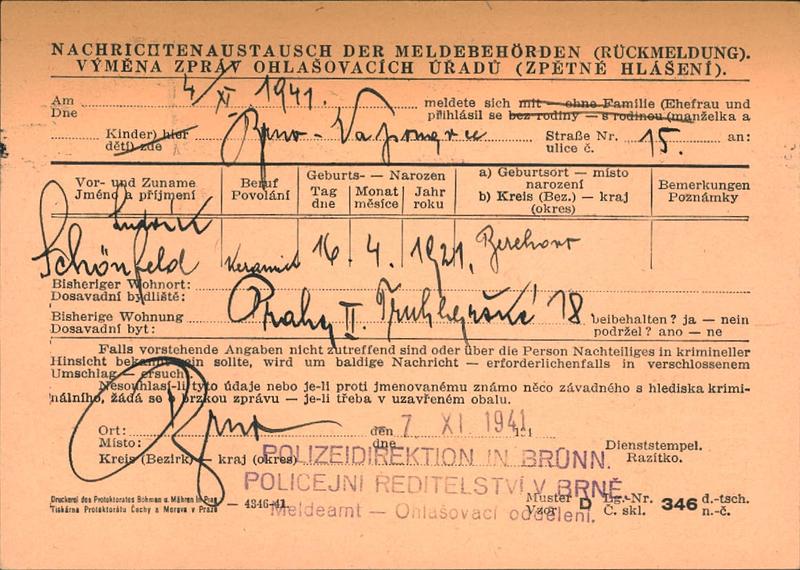 NACHRICHTENAUSTAUSCH DER MELDEBEHÖRDEN (RÜCKMELDUNG).
VÝMĚNA ZPRÁV OHLAŠOVACÍCH ÚŘADŮ (ZPĚTNÉ HLÁŠENÍ).
Am 4/XI 1941. meldete sich mit — ohne Familie (Ehefrau und
Dne přihlásil se bez rodiny — s rodinou (manželka a
Kinder) hier Brno - Straße Nr. 15. an:
děti) zde ulice č.
Vor- und Zuname Beruf Geburts- — Narozen a) Geburtsort — místo Bemerkungen
Jméno a příjmení Povolání Tag Monat Jahr narození Poznámky
dne měsíce roku b) Kreis (Bez.) — kraj
(okres)
Ludvík
Schönfeld Keramik 16. 4. 1921,
Bisheriger Wohnort:
Dosavadní bydliště:
Bisherige Wohnung Praha II. Truhlářská 18 beibehalten? ja — nein
Dosavadní byt: podržel? ano — ne
Falls vorstehende Angaben nicht zutreffend sind oder über die Person Nachteiliges in krimineller
Hinsicht bekannt sein sollte, wird um baldige Nachricht — erforderlichenfalls in verschlossenem
Umschlag — ersucht.
Nesouhlasí-li tyto údaje nebo je-li proti jmenovanému známo něco závadného s hlediska krimi-
nálního, žádá se o brzkou zprávu — je-li třeba v uzavřeném obalu.
Ort: Brno den 7 XI 1941
Místo: dne Dienststempel.
Kreis (Bezirk) — kraj (okres) Razítko.
POLIZEIDIREKTION IN BRÜNN.
POLICEJNÍ ŘEDITELSTVÍ V BRNĚ.
Meldeamt — Ohlašovací oddělení.
Druckerei des Protektorates Böhmen u. Mähren in Prag — 4346-41 Muster D Lg.-Nr. 346 d.-tsch.
Tiskárna Protektorátu Čechy a Morava v Praze Vzor Č. skl. n.-č.